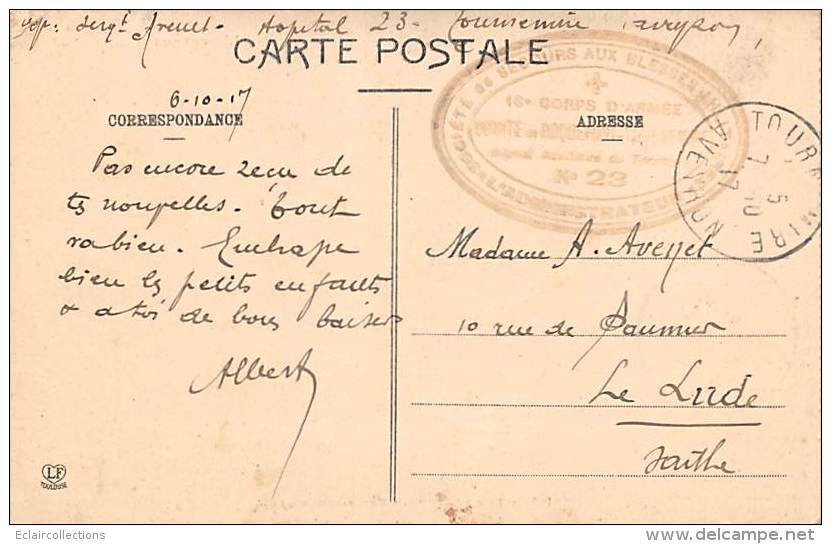 Exp: Sergt Avenet - Hopital 23 - Tournemire Aveyron
CARTE POSTALE
6-10-17
CORRESPONDANCE
ADRESSE
SOCIÉTÉ DE SECOURS AUX BLESSÉS
16e CORPS D'ARMÉE
COMITÉ de ROQUEFORT
Hôpital Auxiliaire du Territoire
No 23
L'ADMINISTRATEUR
TOURNEMIRE
7 5
-10
17
AVEYRON
Pas encore reçu de
tes nouvelles. Tout
va bien. Embrasse
bien les petits enfants
& a toi de bons baisers
Albert
Madame A. Avenet
10 rue de Paumier
Le Lude
Sarthe
LF
TOULOUSE
Eclaircollections
delcampe.net